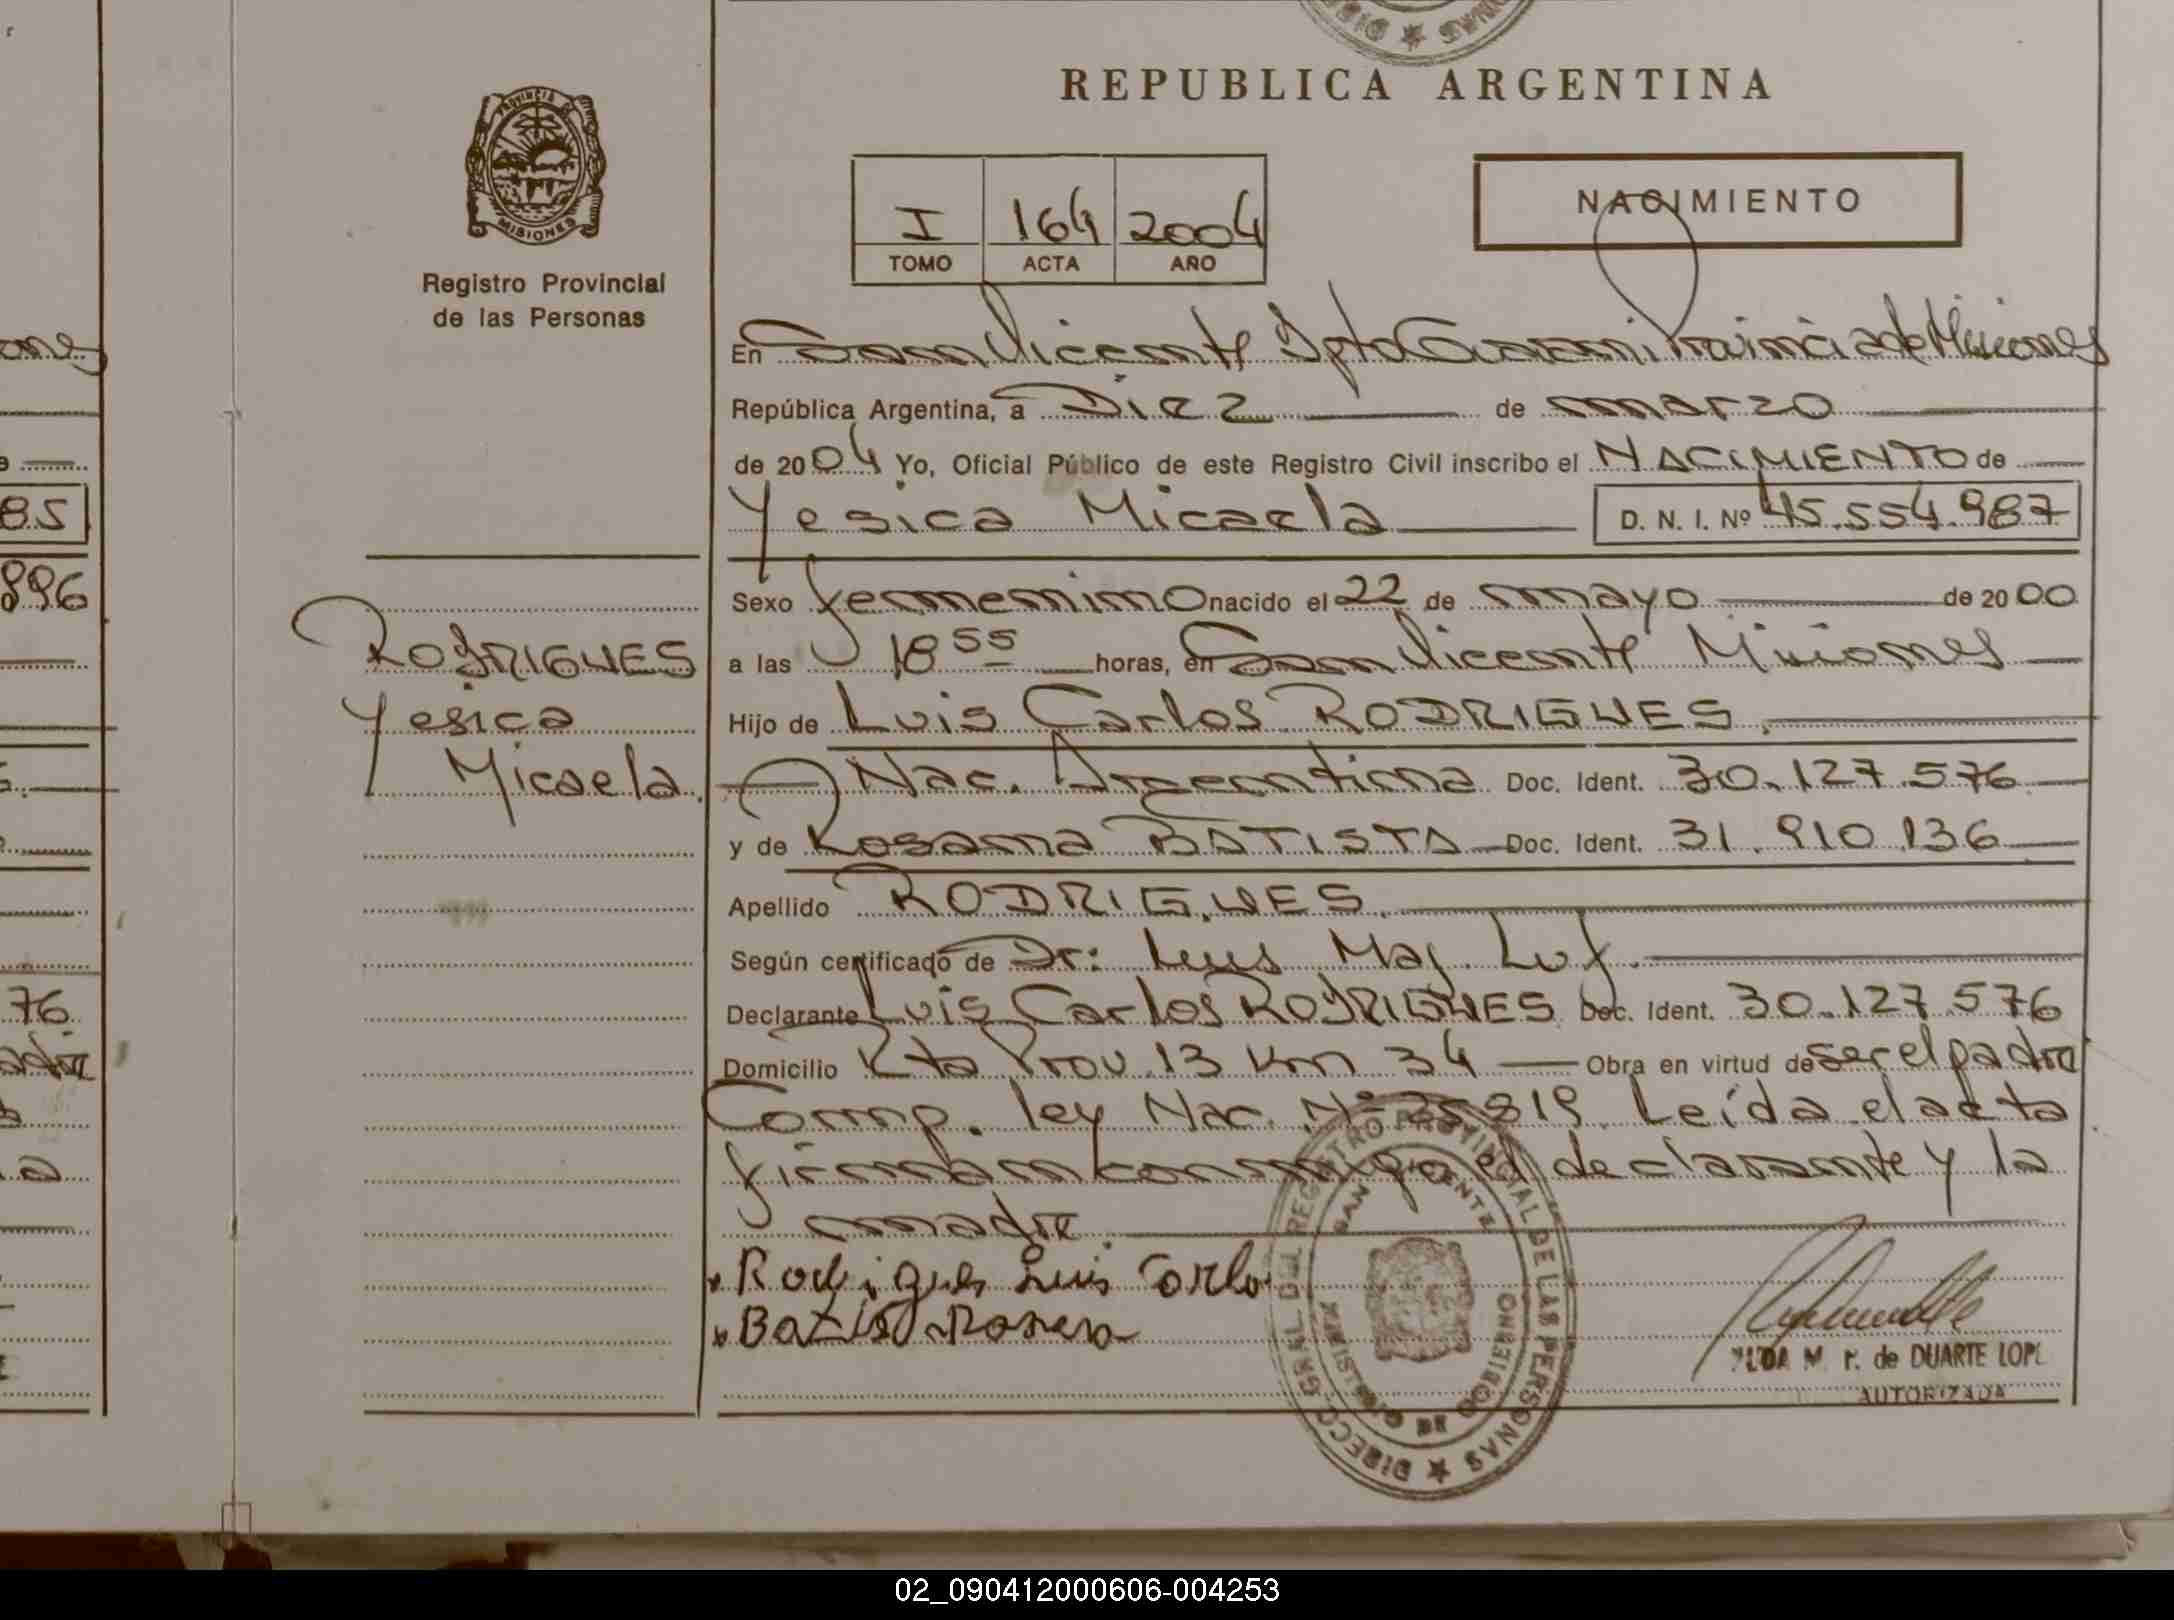 REPUBLICA ARGENTINA
PROVINCIA DE
MISIONES
Registro Provincial
de las Personas
I 164 2004
TOMO ACTA AÑO
NACIMIENTO
En San Vicente Dpto Guarani Provincia de Misiones
República Argentina, a Diez de marzo
de 2004 Yo, Oficial Público de este Registro Civil inscribo el NACIMIENTO de
Yesica Micaela D. N. I. Nº 45.554.987
Sexo femenino nacido el 22 de mayo de 2000
a las 18 55 horas, en San Vicente Misiones
Hijo de Luis Carlos RODRIGUES
Nac. Argentina Doc. Ident. 30.127.576
y de Rosana BATISTA Doc. Ident. 31.910.136
Apellido RODRIGUES
Según certificado de Dr: Luis Maj. Luf.
Declarante Luis Carlos RODRIGUES Doc. Ident. 30.127.576
Domicilio Rta Prov. 13 Km 34 Obra en virtud de ser el padre
Comp. ley Nac. Nº 25819. Leída el acta
firman conmigo el declarante y la
madre.
Rodrigues Luis Carlo
Batista Rosana
RODRIGUES
Yesica
Micaela.
DIRECC. GRAL. DEL REGISTRO PROVINCIAL DE LAS PERSONAS
SAN VICENTE
MINISTERIO DE GOBIERNO
de DUARTE LOPE
AUTORIZADA
85
896
76
02_090412000606-004253